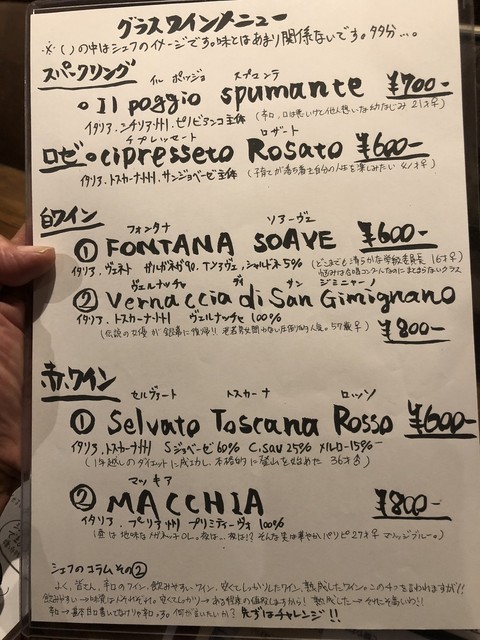 グラスワインメニュー
※( )の中はシェフのイメージです。味とはあまり関係ないです。多分…。
スパークリング
イル ポッジョ スプマンテ
○Il poggio spumante ¥700-
イタリア.シチリア州 ピノビアンコ主体
チプレッセート ロザート
ロゼ○cipresseto Rosato ¥600-
イタリア.トスカーナ州.サンジョベーゼ主体 (子育てが落ち着き自分の人生を楽しみたい 41才♀)
白ワイン
フォンタナ ソアーヴェ
① FONTANA SOAVE ¥600-
イタリア.ヴェネト ガルガネガ90. シャルドネ5% (どこまでも清らかな学級委員長 16才♀
悩みは合唱コンクールなのにまとまらないクラス
ヴェルナッチャ ディ サン ジミニャーノ
② Vernaccia di San Gimignano
イタリア.トスカーナ州 ヴェルナッチャ 100%
(伝説の女優が銀幕に復帰!! 老若男女問わない圧倒的人気。57歳♀) ¥800-
赤ワイン
セルヴァート トスカーナ ロッソ
① Selvato Toscana Rosso ¥600-
イタリア.トスカーナ州 Sジョベーゼ60% C.sau 25% メルロー15%
(1年越しのダイエットに成功し、本格的に登山を始めた 36才♂)
マッキア
② MACCHIA ¥800-
イタリア.プーリア州 プリミティーヴォ 100%
(昼は地味なメガネっ子OL。夜は…夜は!? そんな実は華やかパリピ27才♀ マリッジブルー。)
シェフのコラムその②
よく、皆さん、辛口のワイン、飲みやすいワイン、安くてしっかりしたワイン、熟成したワイン。この4つを言われますが!!
飲みやすい→味覚は人それぞれ。安くてしっかり→ある程度の値段しますから! 熟成した→それこそ高いわ!!
辛口→基本自己書いてなけりゃ辛口っす。何が言いたいか? 先ずはチャレンジ!!